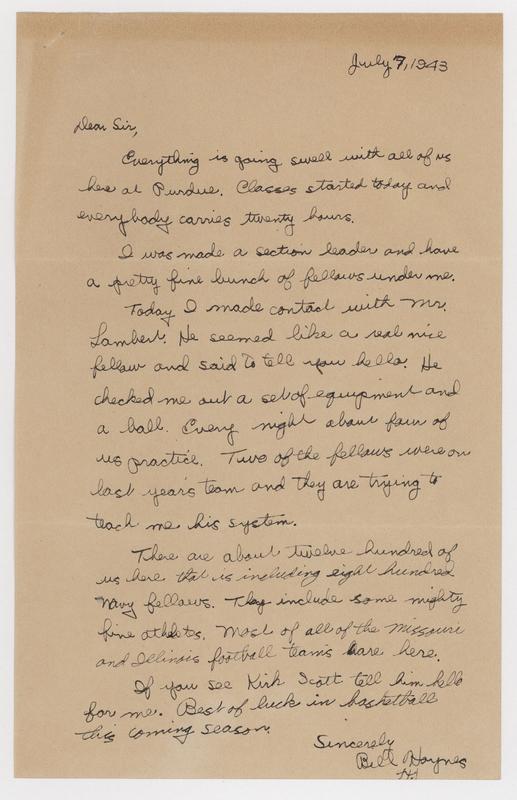 July 7, 1943
Dear Sir,
Everything is going swell with all of us
here at Purdue. Classes started today and
everybody carries twenty hours.
I was made a section leader and have
a pretty fine bunch of fellows under me.
Today I made contact with Mr.
Lambert. He seemed like a real nice
fellow and said to tell you hello. He
checked me out a set of equipment and
a ball. Every night about four of
us practice. Two of the fellows were on
last year's team and they are trying to
teach me his system.
There are about twelve hundred of
us here that is including eight hundred
Navy fellows. They include some mighty
fine athletes. Most of all of the Missouri
and Illinois football teams are here.
If you see Kirk Scott tell him hello
for me. Best of luck in basketball
this coming season.
Sincerely
Bill Haynes